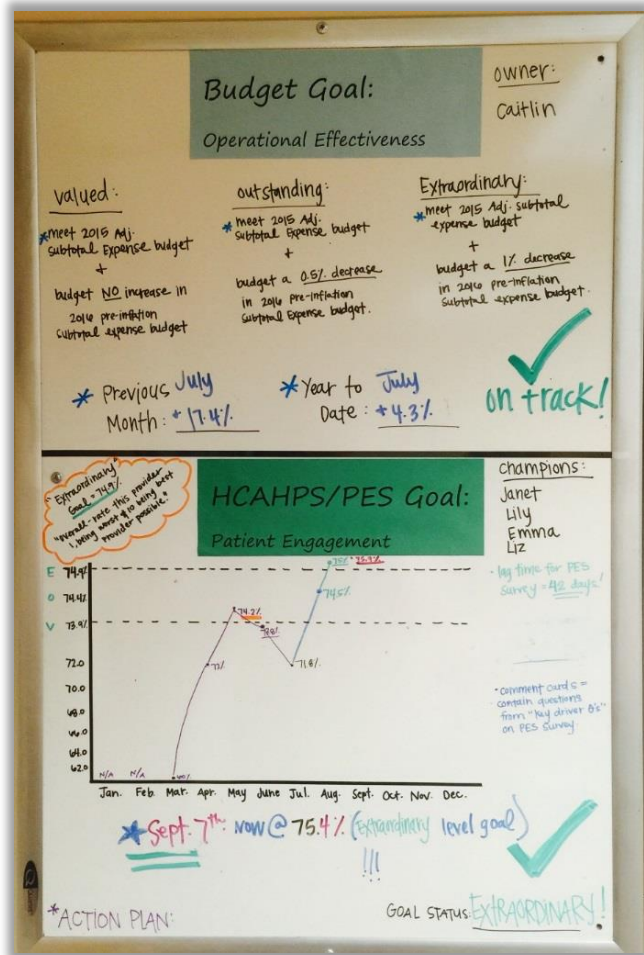 Budget Goal:
Operational Effectiveness
owner:
Caitlin
valued:
*meet 2015 Adj.
subtotal Expense budget
+
budget NO increase in
2016 pre-inflation
subtotal expense budget
outstanding:
*meet 2015 Adj.
subtotal Expense budget
+
budget a 0.5% decrease
in 2016 pre-inflation
subtotal Expense budget.
Extraordinary:
*meet 2015 Adj. subtotal
expense budget
+
budget a 1% decrease
in 2016 pre-inflation
subtotal expense budget.
* Previous July
Month: + 17.4%
* Year to July
Date: + 4.3%
on track!
"Extraordinary"
Goal = 74.9%
"overall-rate this provider
1, being worst & 10 being best
provider possible."
HCAHPS/PES Goal:
Patient Engagement
champions:
Janet
Lily
Emma
Liz
• lag time for PES
survey = 42 days!
• comment cards =
contain questions
from "key driver Q's"
on PES survey.
E 74.9%
O 74.4%
V 73.9%
72.0
70.0
68.0
66.0
64.0
62.0
75%
74.5%
74.2%
71.8%
N/A N/A
Jan. Feb. Mar. Apr. May June Jul. Aug. Sept. Oct. Nov. Dec.
* Sept. 7th: now @ 75.4% (Extraordinary level goal)
!!!
*ACTION PLAN:
GOAL STATUS: EXTRAORDINARY!